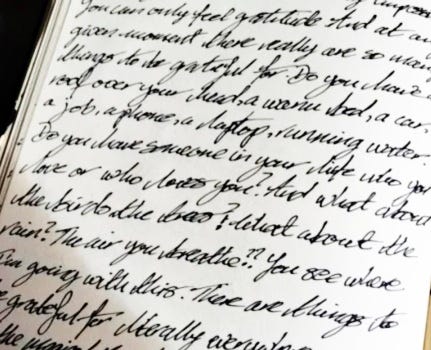 you can only feel gratitude. And at any
given moment there really are so many
things to be grateful for. Do you have a
roof over your head, a warm bed, a car,
a job, a phone, a laptop, running water.
Do you have someone in your life who you
love or who loves you? And what about
the birds the trees? What about the
rain? The air you breathe?? You see where
I'm going with this. There are things to
be grateful for literally
the